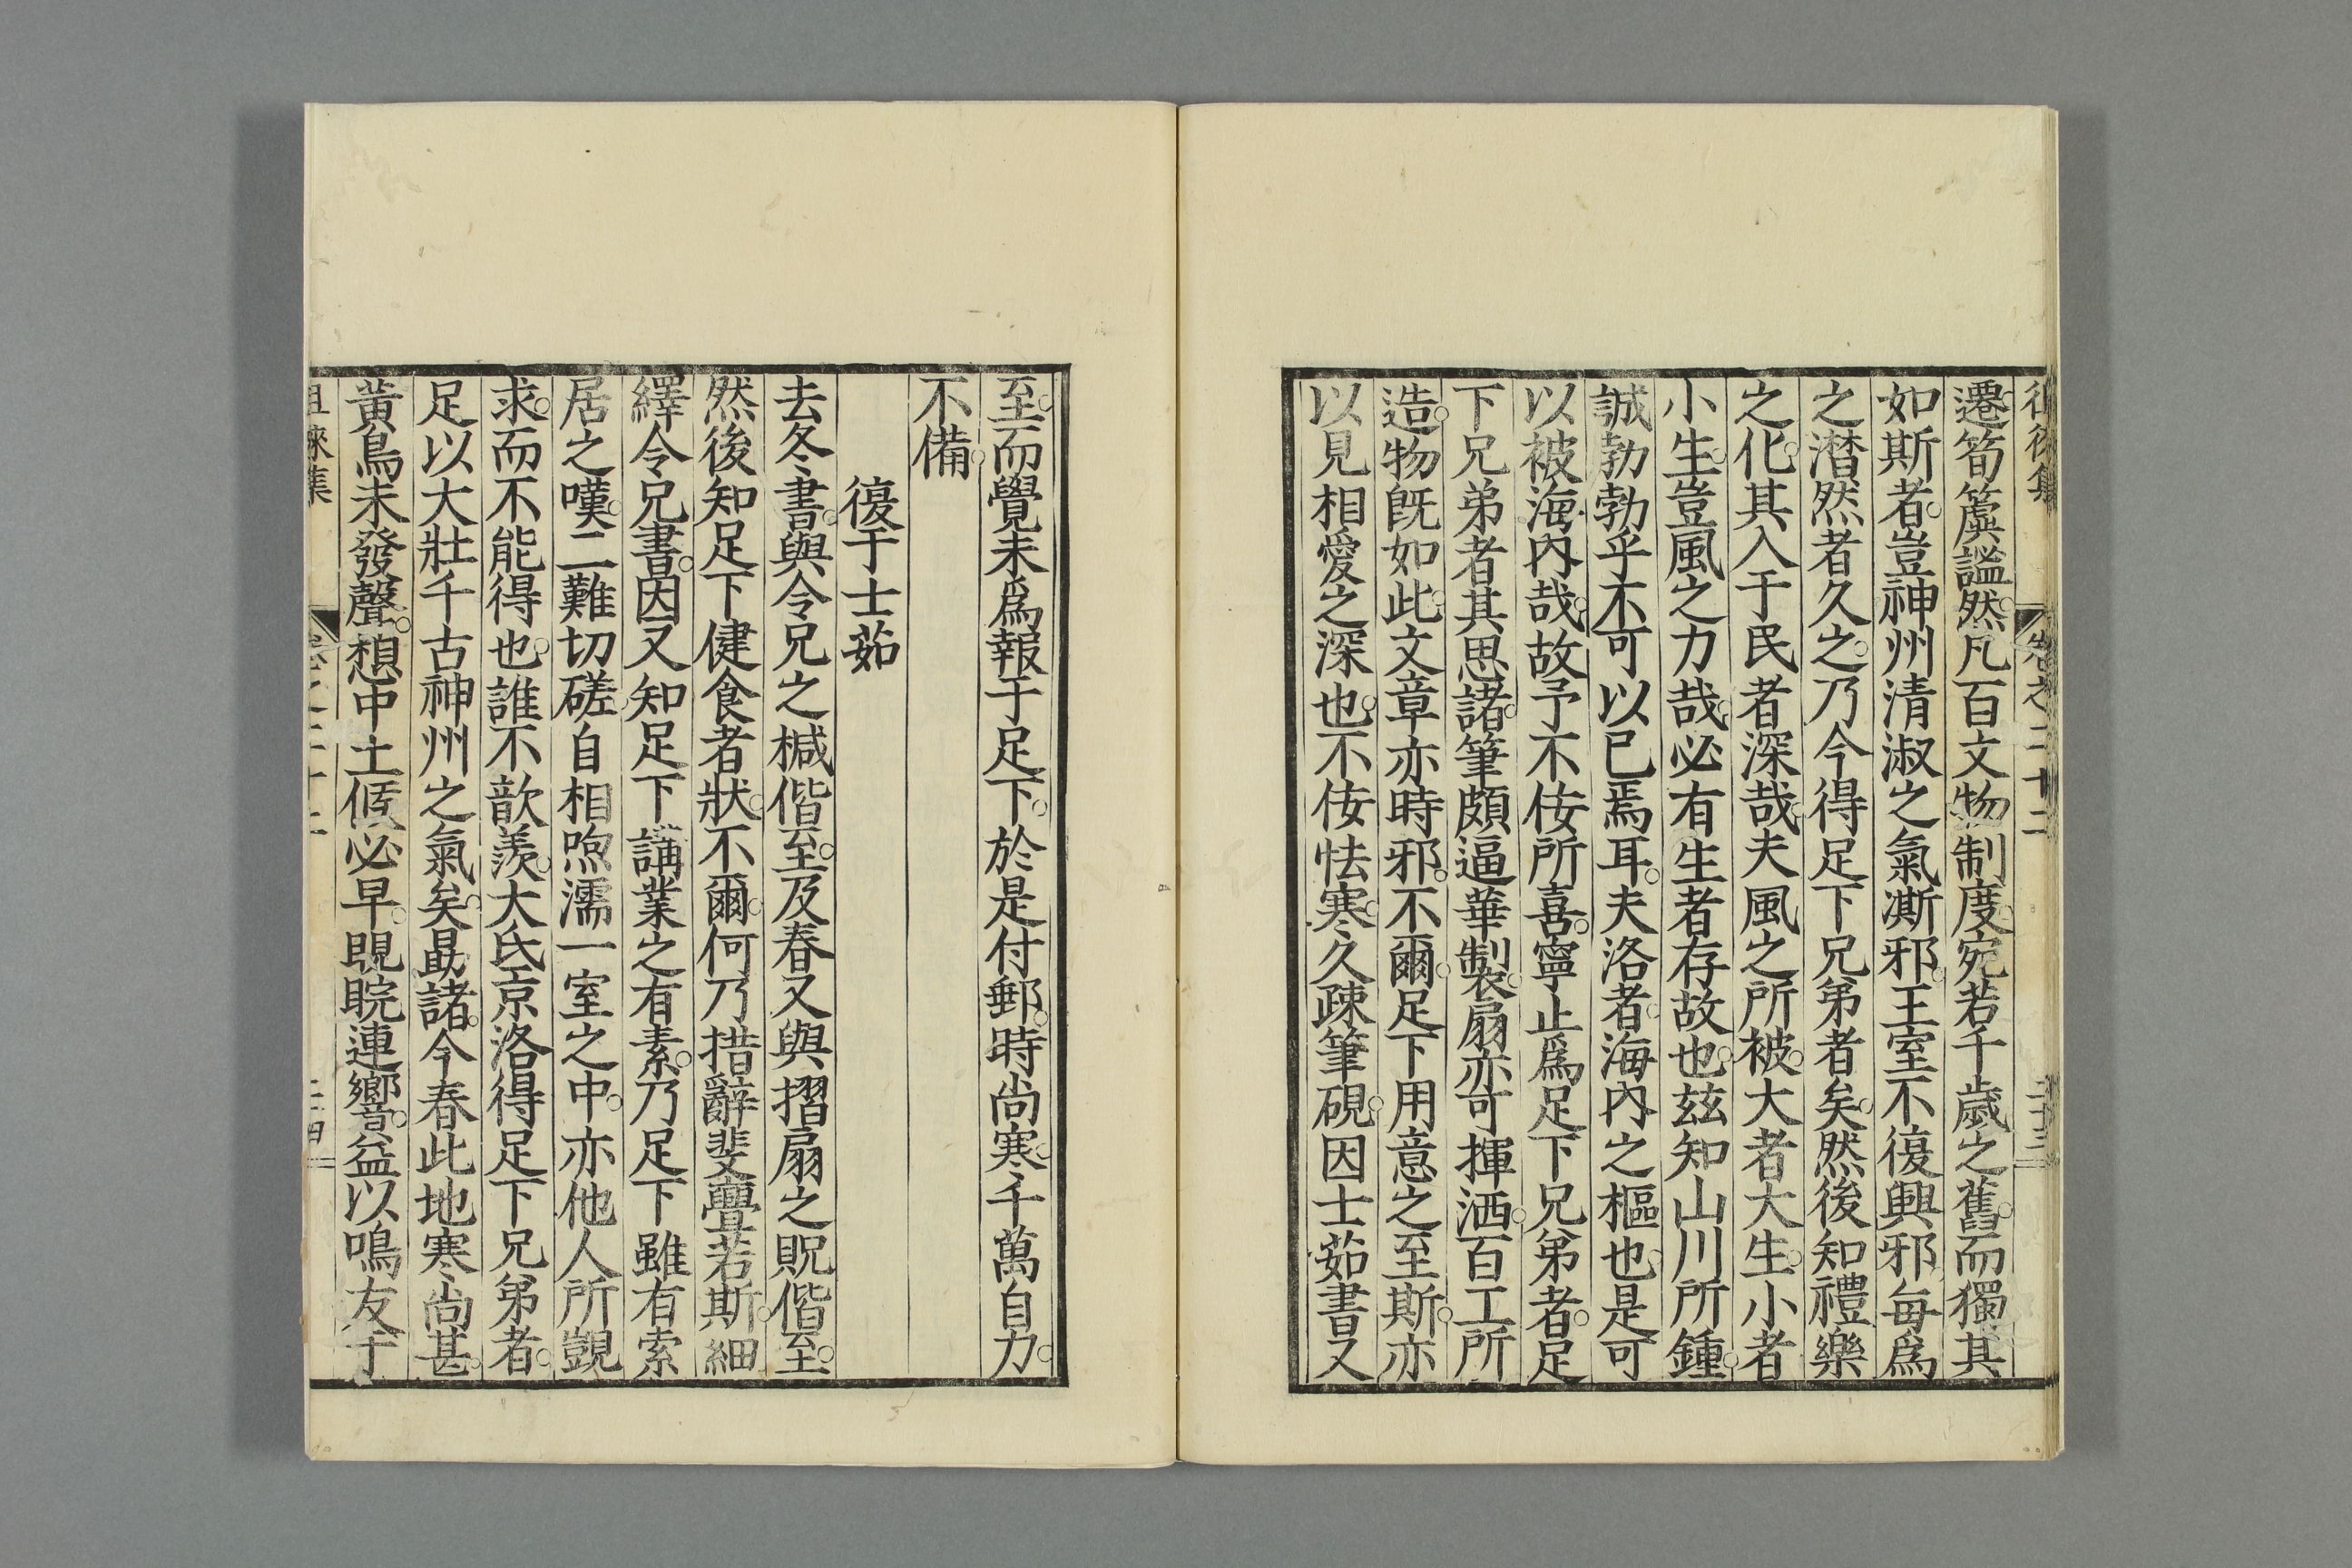 遷筍簴謐然凡百文物制度宛若千歲之舊而獨其
如斯者豈神州清淑之氣澌邪王室不復興邪每爲
之潸然者久之乃今得足下兄弟者矣然後知禮樂
之化其入于民者深哉夫風之所被大者大生小者
小生豈風之力哉必有生者存故也玆知山川所鍾
誠勃勃乎不可以已焉耳夫洛者海內之樞也是可
以被海內哉故予不佞所喜寧止爲足下兄弟者足
下兄弟者其思諸筆頗逼華製扇亦可揮洒百工所
造物旣如此文章亦時邪不爾足下用意之至斯亦
以見相愛之深也不佞怯寒久疎筆硯因士茹書又
至而覺未爲報于足下於是付郵時尚寒千萬自力
不備
復于士茹
去冬書與令兄之椷偕至及春又與摺扇之貺偕至
然後知足下健食者狀不爾何乃措辭斐亹若斯細
繹令兄書因又知足下講業之有素乃足下雖有索
居之嘆二難切磋自相喣濡一室之中亦他人所覬
求而不能得也誰不歆羨大氐京洛得足下兄弟者
足以大壯千古神州之氣矣勗諸今春此地寒尚甚
黃鳥未發聲想中土候必早睍睆連響益以鳴友于